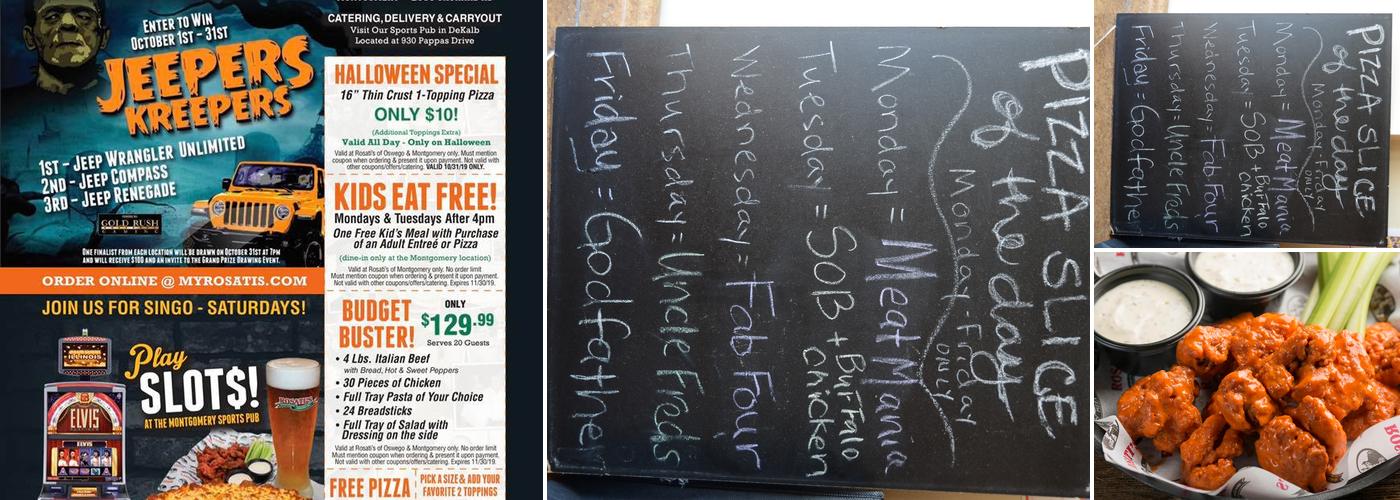 ENTER TO WIN
OCTOBER 1ST - 31ST
JEEPERS
KREEPERS
1ST - JEEP WRANGLER UNLIMITED
2ND - JEEP COMPASS
3RD - JEEP RENEGADE
GOLD RUSH
GAMING
ONE FINALIST FROM EACH LOCATION WILL BE DRAWN ON OCTOBER 31ST AT 7PM
AND WILL RECEIVE $100 AND AN INVITE TO THE GRAND PRIZE DRAWING EVENT.
ORDER ONLINE @ MYROSATIS.COM
JOIN US FOR SINGO - SATURDAYS!
Play
SLOT$!
AT THE MONTGOMERY SPORTS PUB
ILLINOIS
ELVIS
ELVIS
ROSATI'S
CATERING, DELIVERY & CARRYOUT
Visit Our Sports Pub in DeKalb
Located at 930 Pappas Drive
HALLOWEEN SPECIAL
16" Thin Crust 1-Topping Pizza
ONLY $10!
(Additional Toppings Extra)
Valid All Day - Only on Halloween
Valid at Rosati's of Oswego & Montgomery only. Must mention
coupon when ordering & present it upon payment. Not valid with
other coupons/offers/catering. VALID 10/31/19 ONLY.
KIDS EAT FREE!
Mondays & Tuesdays After 4pm
One Free Kid's Meal with Purchase
of an Adult Entreé or Pizza
(dine-in only at the Montgomery location)
Valid at Rosati's of Montgomery only. No order limit
Must mention coupon when ordering & present it upon payment.
Not valid with other coupons/offers/catering. Expires 11/30/19.
BUDGET
BUSTER!
ONLY
$129.99
Serves 20 Guests
• 4 Lbs. Italian Beef
with Bread, Hot & Sweet Peppers
• 30 Pieces of Chicken
• Full Tray Pasta of Your Choice
• 24 Breadsticks
• Full Tray of Salad with
Dressing on the side
Valid at Rosati's of Oswego & Montgomery only. No order limit
Must mention coupon when ordering & present it upon payment.
Not valid with other coupons/offers/catering. Expires 11/30/19.
FREE PIZZA
PICK A SIZE & ADD YOUR
FAVORITE 2 TOPPINGS
PIZZA SLICE
of the day
Monday-Friday
ONLY
Monday = Meat Mania
Tuesday = SOB + Buffalo
Chicken
Wednesday = Fab Four
Thursday = Uncle Freds
Friday = Godfather
PIZZA SLICE
of the day
Monday-Friday
ONLY
Monday = Meat Mania
Tuesday = SOB + Buffalo
Chicken
Wednesday = Fab Four
Thursday = Uncle Freds
Friday = Godfather